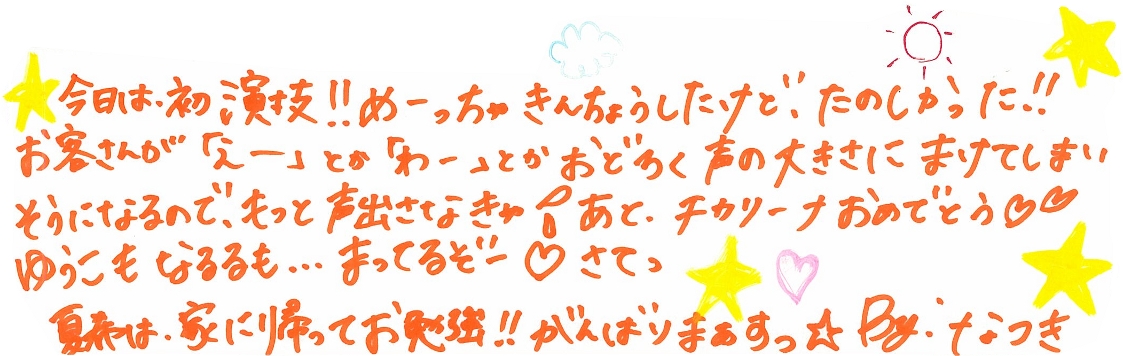 今日は、初演技!!めーっちゃきんちょうしたけど、たのしかった!!
お客さんが「えー」とか「わー」とかおどろく声の大きさにまけてしまい
そうになるので、もっと声出さなきゃ！あと、チカリーナおめでとう♡♡
ゆうこもなるるも…まってるぞー♡さてっ
夏希は、家に帰ってお勉強!!がんばりまぁすっ☆By.なつき